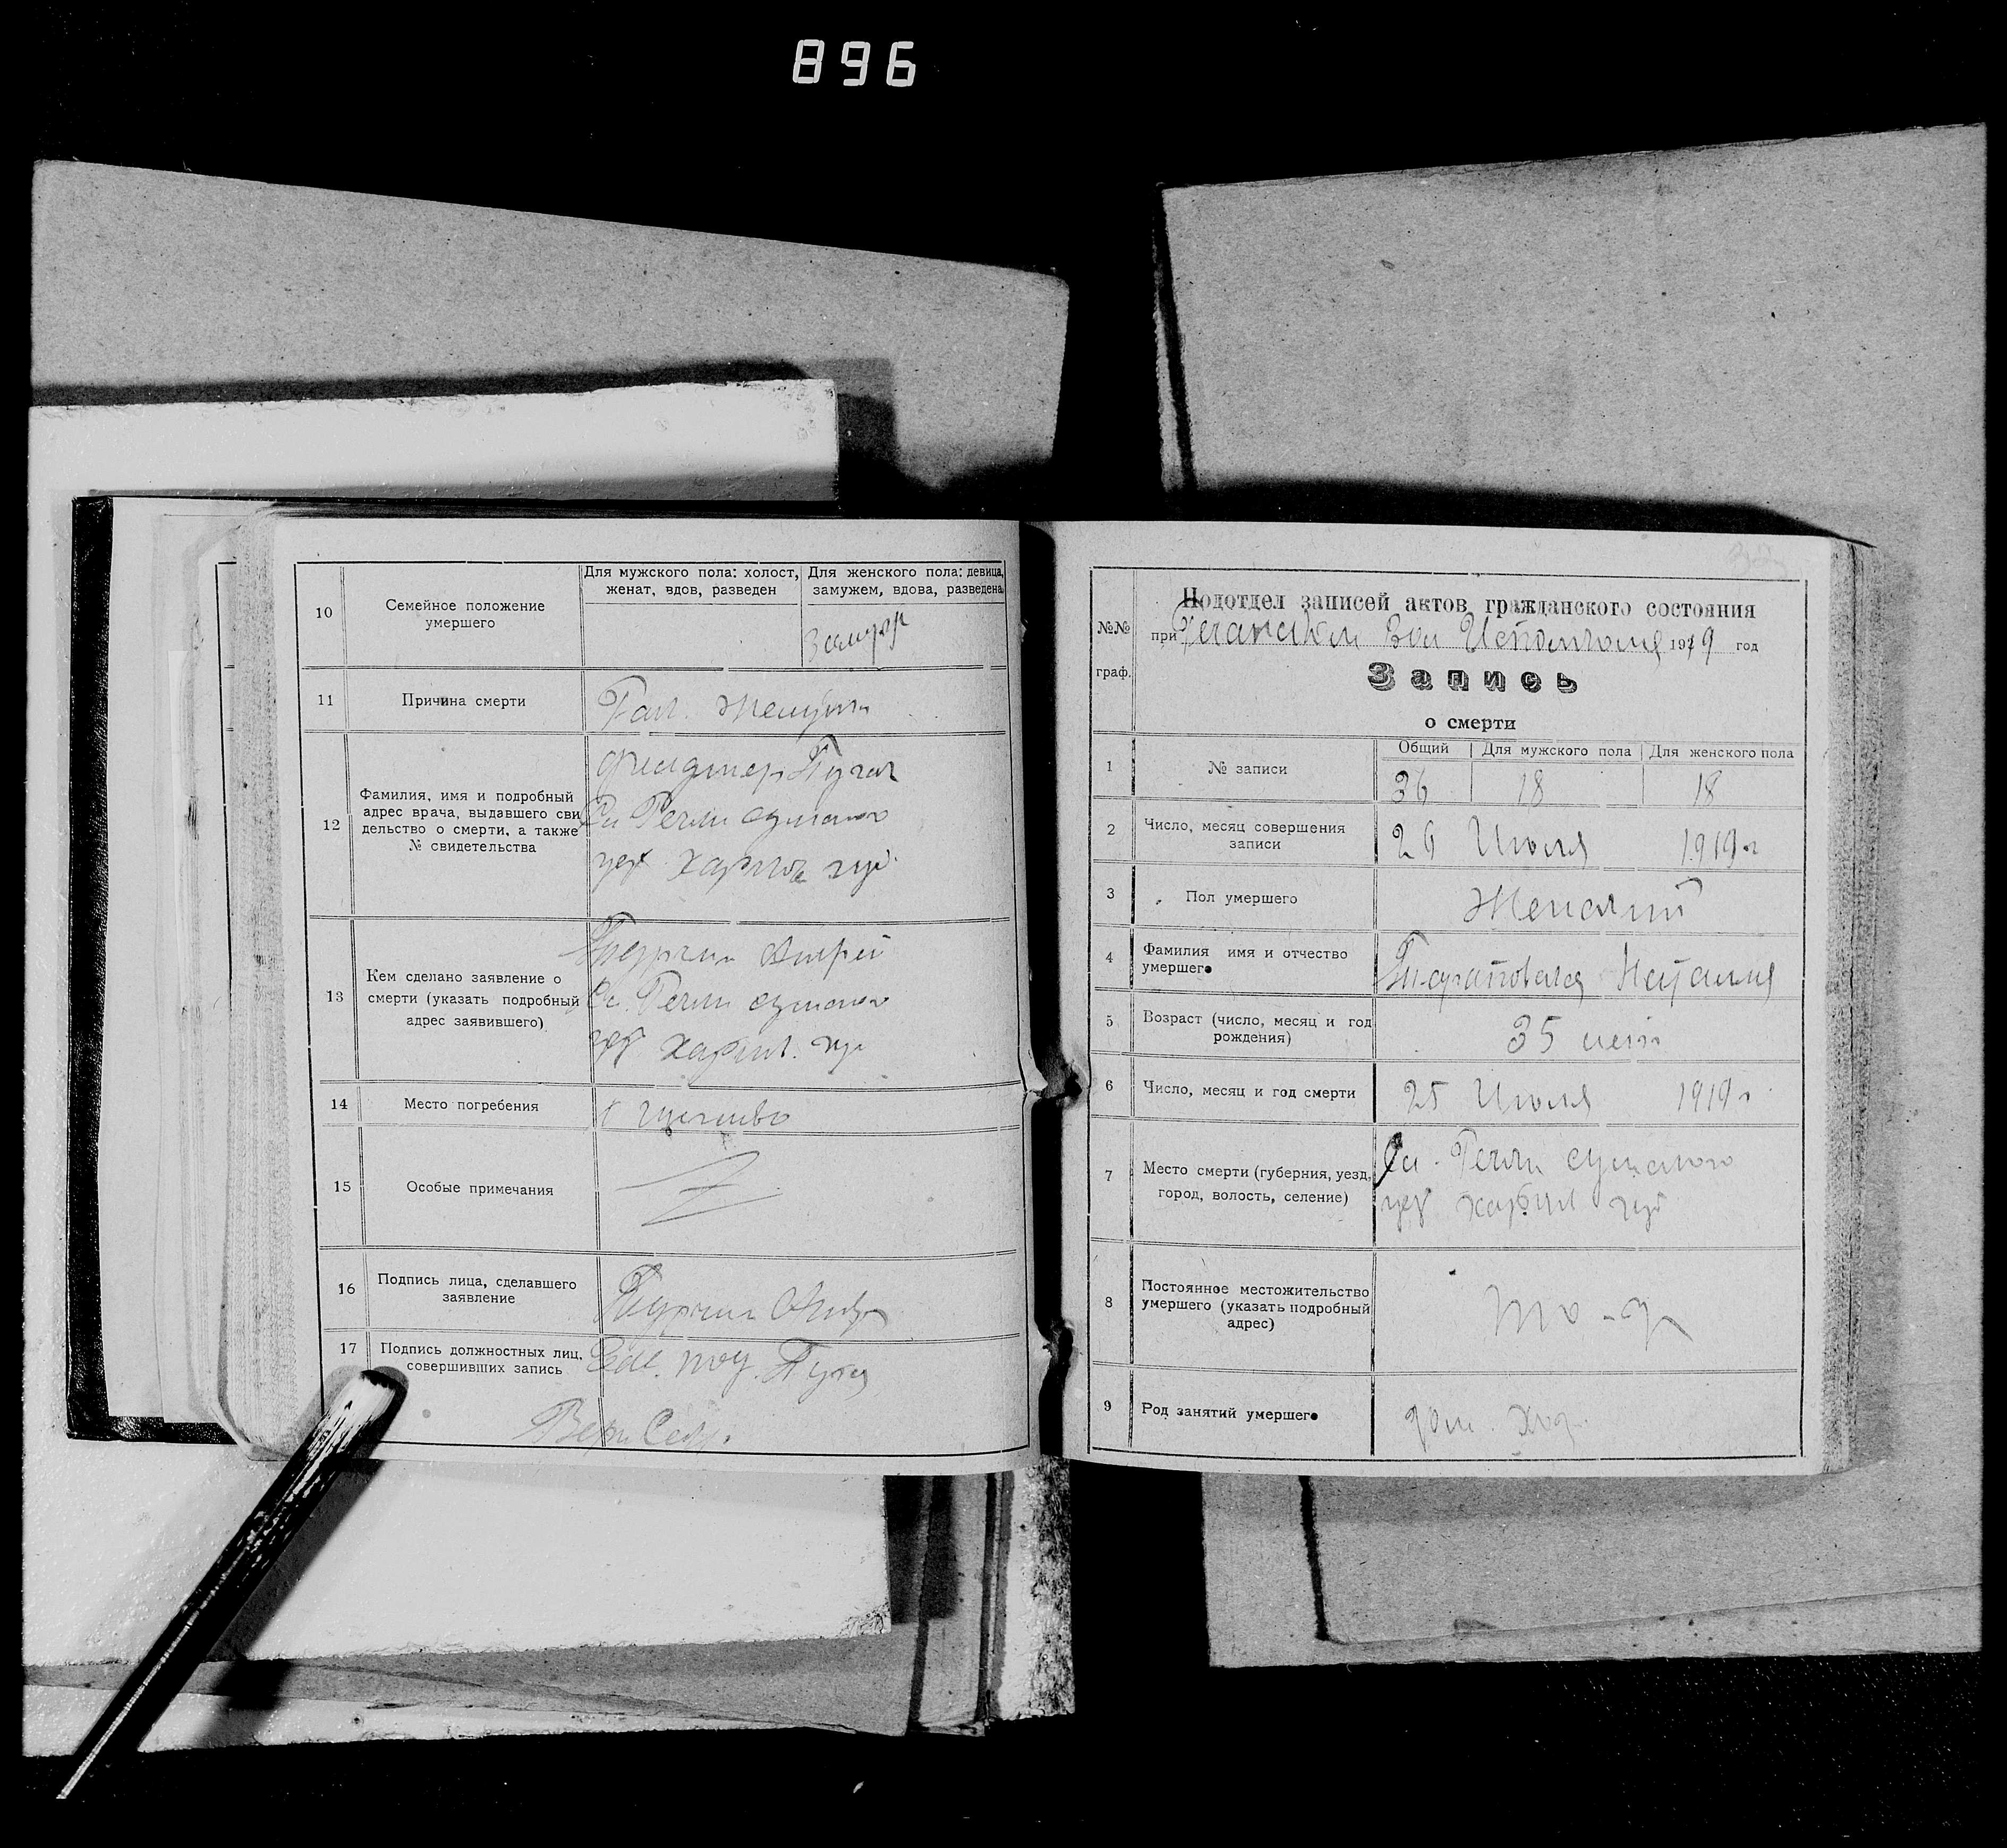 896
10
Семейное положение
умершего
Для мужского пола: холост,
женат, вдов, разведен
Для женского пола: девица,
замужем, вдова, разведена
замуж
11
Причина смерти
12
Фамилия, имя и подробный
адрес врача, выдавшего сви
дельство о смерти, а также
№ свидетельства
сл Речки сумского
уез харьков губ.
13
Кем сделано заявление о
смерти (указать подробный
адрес заявившего)
Андрей
сл. Речки сумского
уез харьк. губ
14
Место погребения
15
Особые примечания
16
Подпись лица, сделавшего
заявление
17
Подпись должностных лиц,
совершивших запись
№№
граф.
Подотдел записей актов гражданского состояния
при Вол Исполкоме 1919 год
Запись
о смерти
1
№ записи
Общий
Для мужского пола
Для женского пола
36
18
18
2
Число, месяц совершения
записи
26 Июля 1919 г
3
Пол умершего
Женский
4
Фамилия имя и отчество
умершего
Наталия
5
Возраст (число, месяц и год
рождения)
35 лет
6
Число, месяц и год смерти
25 Июля 1919 г
7
Место смерти (губерния, уезд,
город, волость, селение)
Сл. Речки сумского
уез харьк губ
8
Постоянное местожительство
умершего (указать подробный
адрес)
9
Род занятий умершего
дом. хоз.